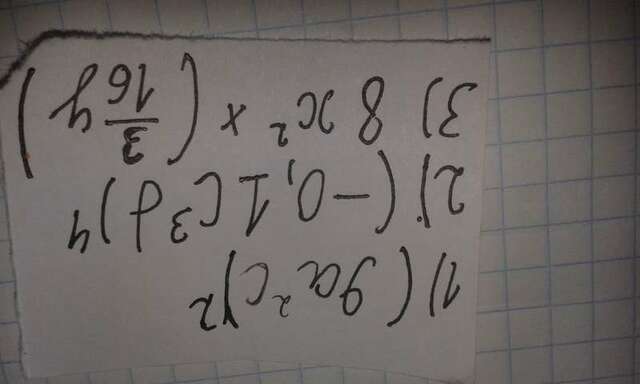 1) (9a²c)²
2) (-0,1c³d)⁴
3) 8x² × (3/16 y)